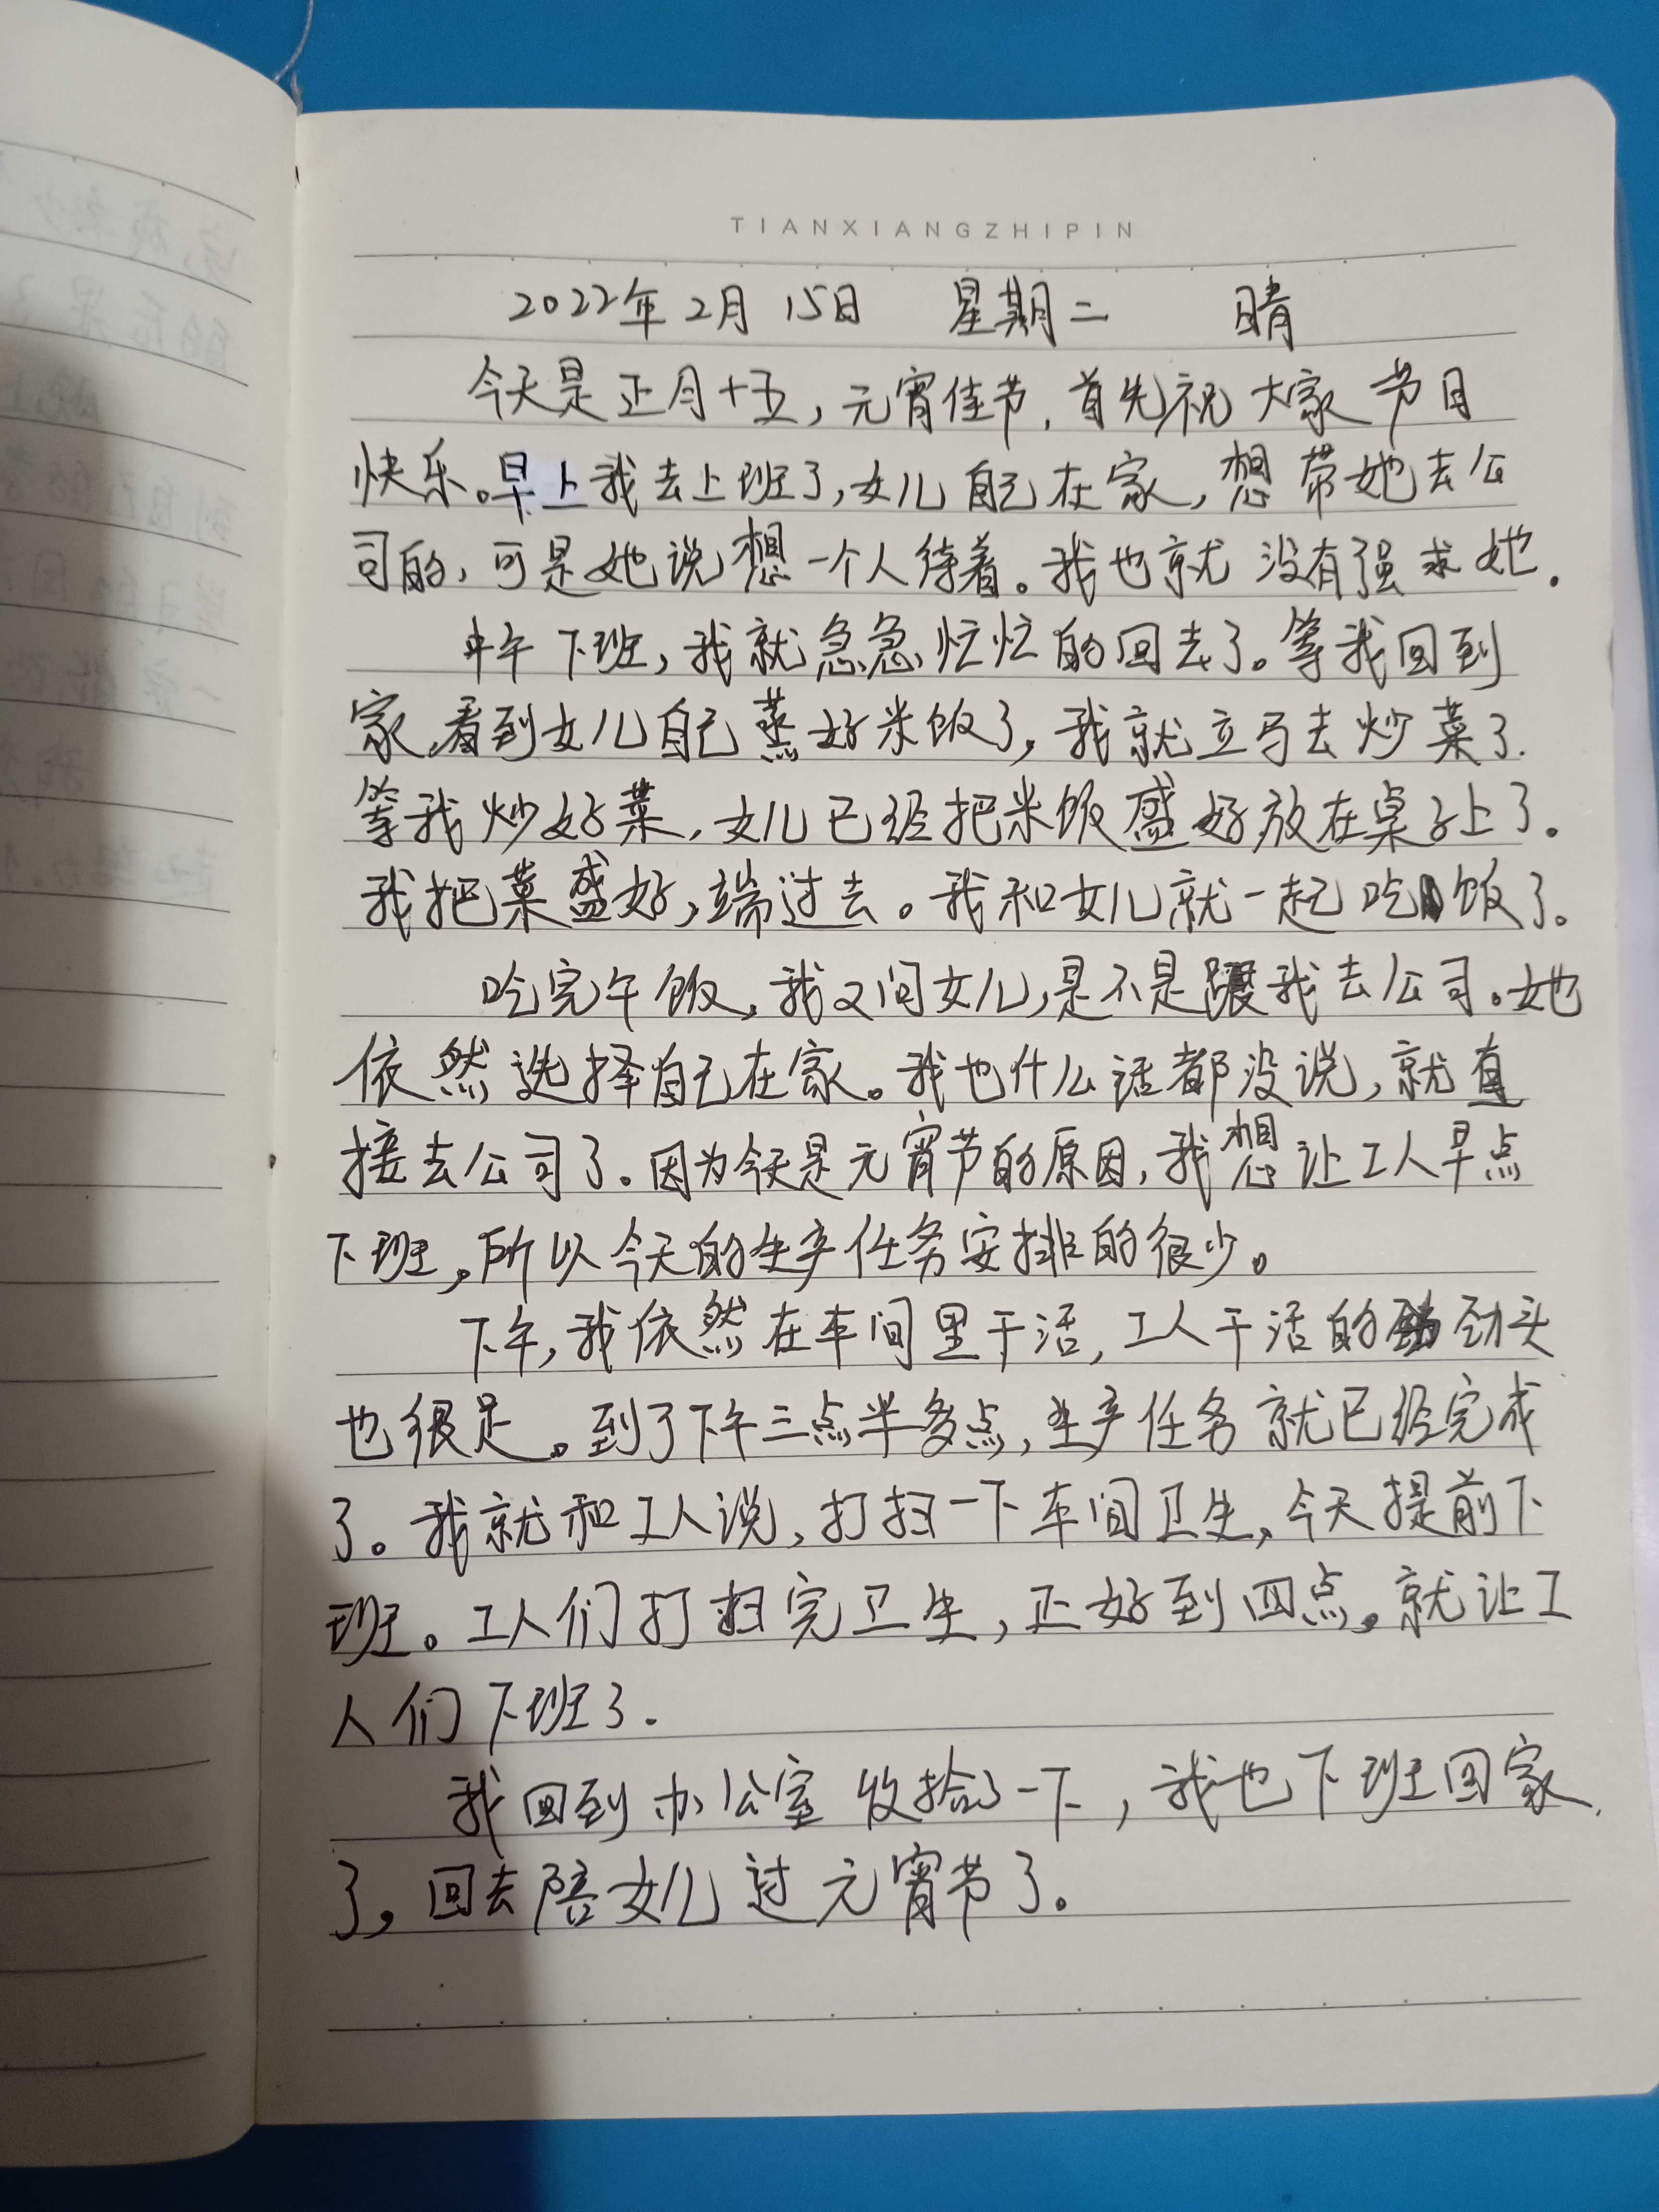 TIANXIANGZHIPIN
2022年2月15日 星期二 晴
今天是正月十五,元宵佳节,首先祝大家节日
快乐。早上我去上班了,女儿自己在家,想带她去公
司的,可是她说想一个人待着。我也就没有强求她.
中午下班,我就急急忙忙的回去了。等我回到
家,看到女儿自己蒸好米饭了,我就立马去炒菜了.
等我炒好菜,女儿已经把米饭盛好放在桌子上了。
我把菜盛好,端过去。我和女儿就一起吃饭了。
吃完午饭,我又问女儿,是不是跟我去公司。她
依然选择自己在家。我也什么话都没说,就直
接去公司了。因为今天是元宵节的原因,我想让工人早点
下班,所以今天的生产任务安排的很少。
下午,我依然在车间里干活,工人干活的劲头
也很足。到了下午三点半多点,生产任务就已经完成
了。我就和工人说,打扫一下车间卫生,今天提前下
班。工人们打扫完卫生,正好到四点。就让工
人们下班了.
我回到办公室收拾了一下,我也下班回家
了,回去陪女儿过元宵节了。